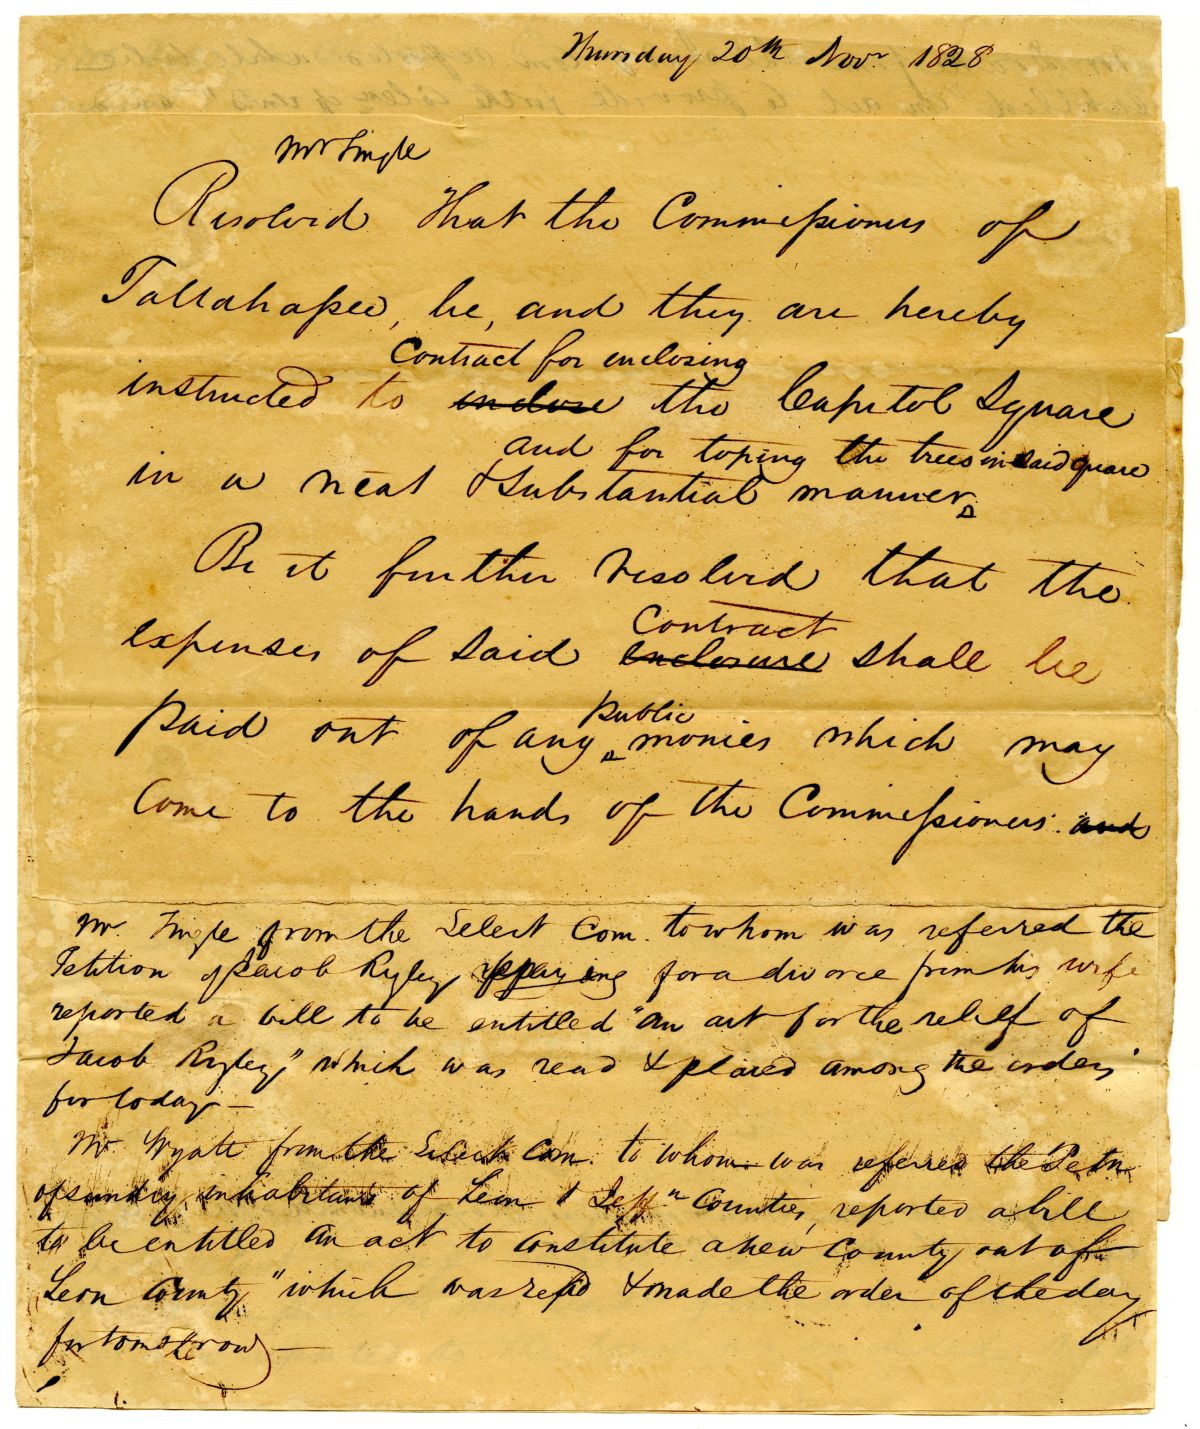 Thursday 20th Novr 1828
Mr Single
Resolved That the Commissioners of
Tallahassee, be, and they are hereby
Contract for enclosing
instructed to inclose the Capitol Square
and for toping the trees in said square
in a neat & Substantial manner
Be it further resolved that the
Contract
expenses of said enclosure shall be
public
paid out of any monies which may
Come to the hands of the Commissioners and
Mr. from the Select Com. to whom was referred the
Petition of Jacob Rygley for a divorce from his wife
reported a bill to be entitled "an act for the relief of
Jacob Rygley," which was read & placed among the orders
for today —
Mr. Wyatt from the Select Com. to whom was referred the Petn
of sundry inhabitants of Leon & Jeffn Counties, reported a bill
to be entitled an act to constitute a new County out of
Leon County" which was read & made the order of the day
for tomorrow —